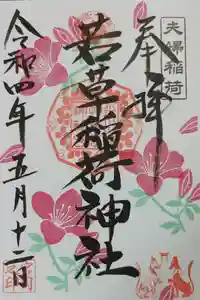 夫婦稲荷
奉拝
若草稲荷神社
令和四年五月十二日